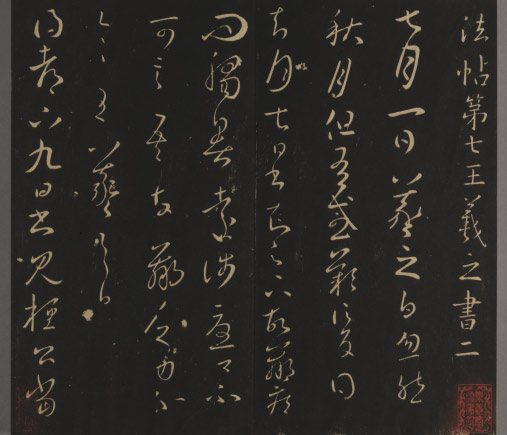 法帖第七王羲之書二
七月一日羲之白忽然
秋月但有感歎信反得
去月七日書知足下故羸疾
問觸暑遠涉憂卿不
可言吾故羸乏力不
一一王羲之白
得都下九日書見桓公當